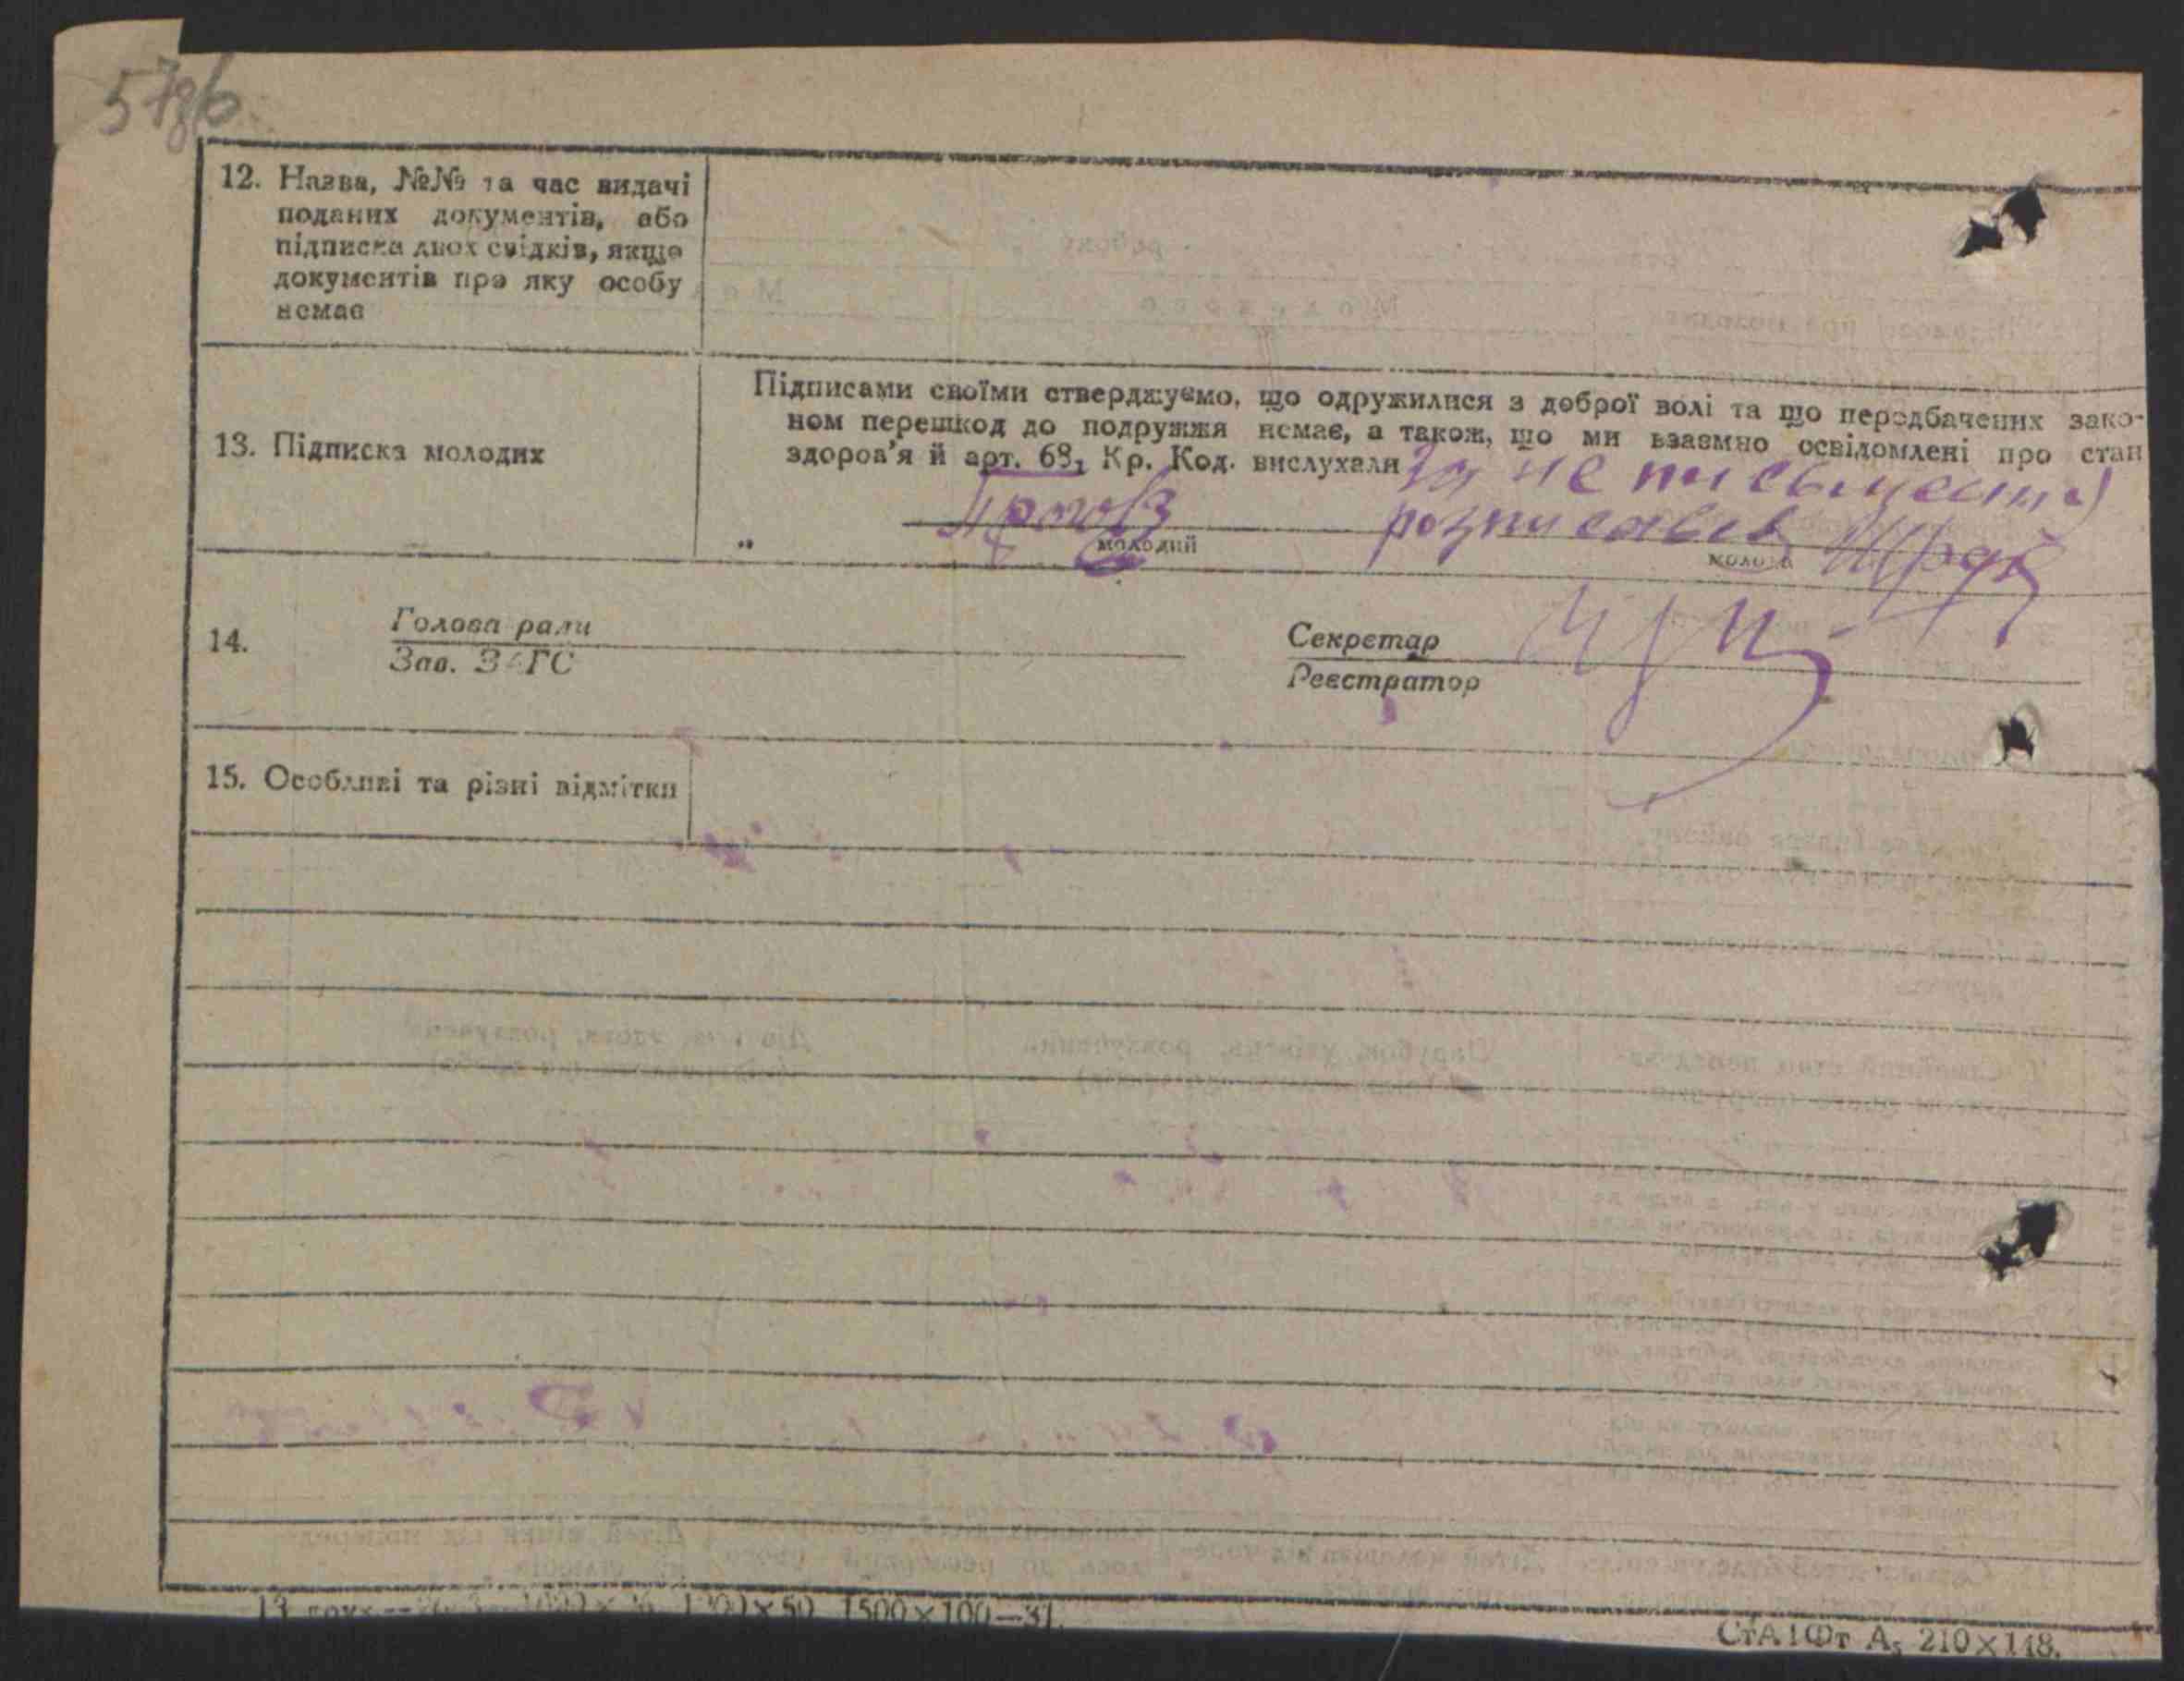 57зб
12. Назва, №№ та час видачі
поданих документів, або
підписка двох свідків, якщо
документів про яку особу
немає
13. Підписка молодих
Підписами своїми стверджуємо, що одружилися з доброї волі та що передбачених зако-
ном перешкод до подружжя немає, а також, що ми взаємно освідомлені про стан
здоров'я й арт. 68, Кр. Код. вислухали
За не письменну
розписався
молодий
молода
14.
Голова ради
Зав. ЗАГС
Секретар
Реєстратор
15. Особливі та різні відмітки
1500×100—31.
СтАІФт А₅ 210×148.